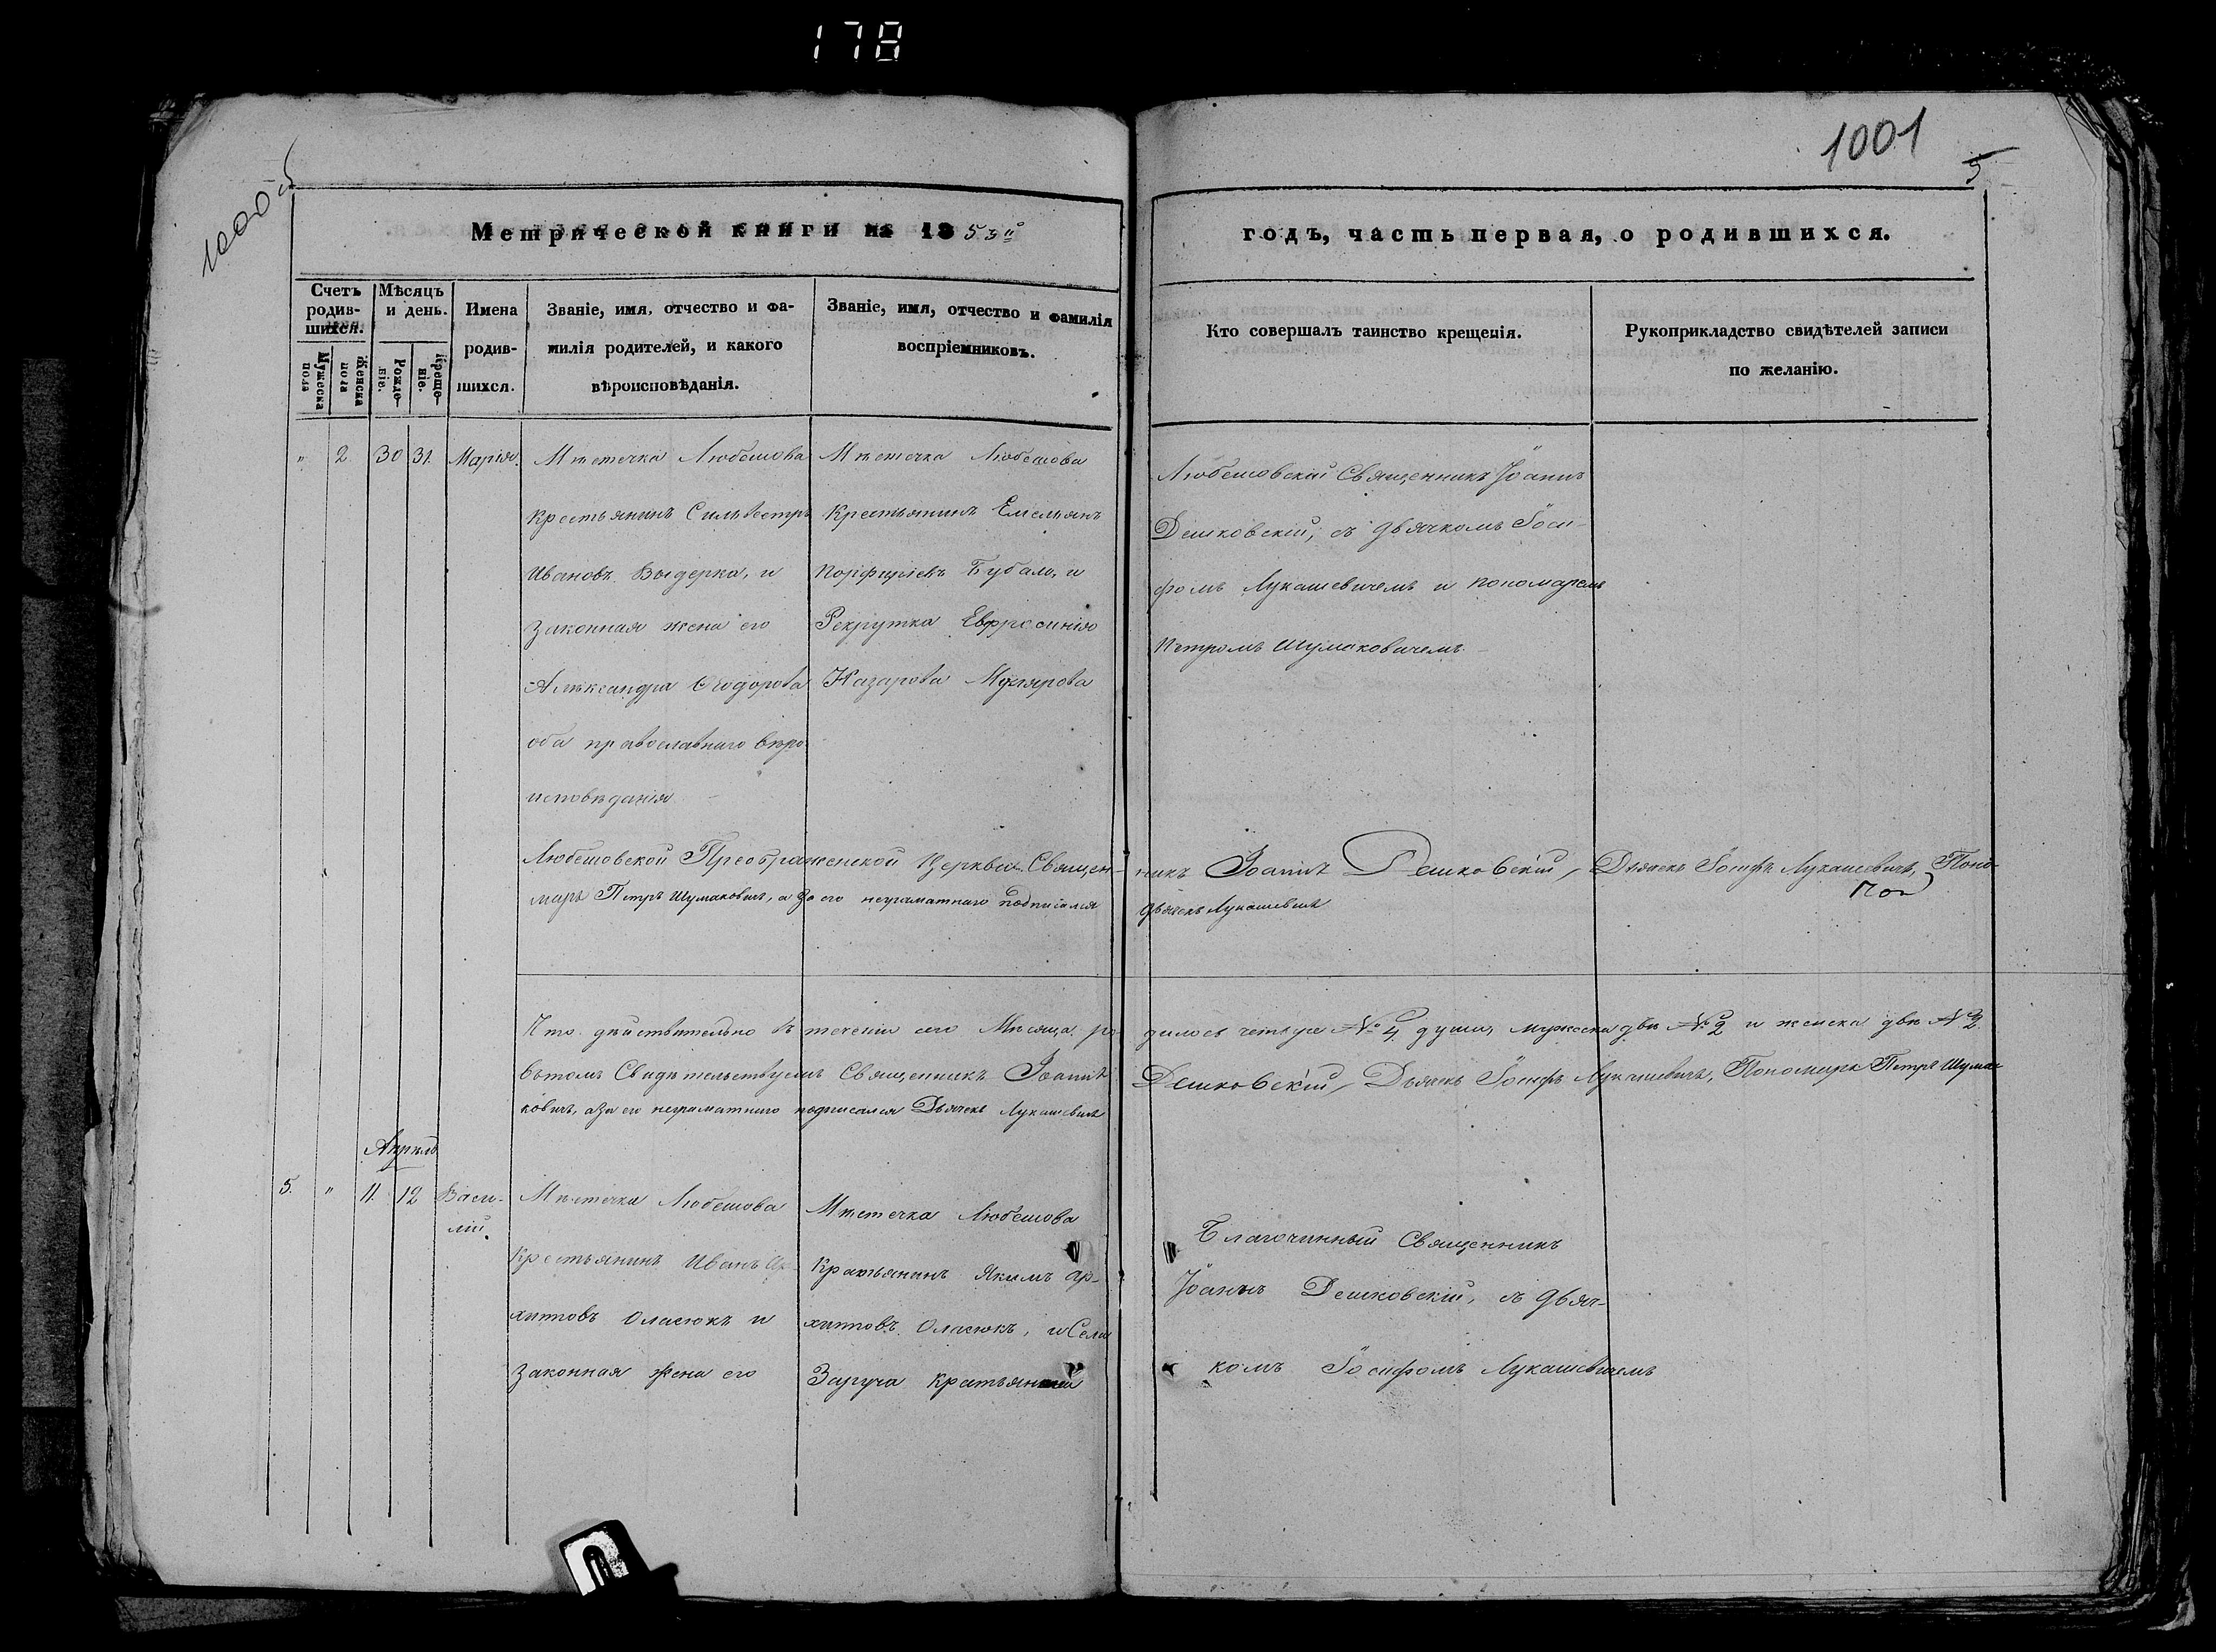 178
1001
5
1000 об
Метрической книги на 1853й
годъ, часть первая, о родившихся.
Счетъ родив-
шихся.
Мужеска пола
Женска пола
Мѣсяцъ и день.
Рожде-
ніе.
Креще-
ніе.
Имена
родив-
шихся.
Званіе, имя, отчество и фа-
милія родителей, и какого
вѣроисповѣданія.
Званіе, имя, отчество и фамилія
воспріемниковъ.
Кто совершалъ таинство крещенія.
Рукоприкладство свидѣтелей записи
по желанію.
" 2. 30 31. Марія.
Мѣстечка Любешова
крестьянинъ Сильвестръ
Ивановъ Выдерка, и
законная жена его
Александра Ѳеодорова
оба православнаго вѣро
исповѣданія
Мѣстечка Любешова
Крестьянинъ Емельянъ
Порфиріевъ Бубало, и
Рекрутка Евфросинія
Назарова
Любешовскій Священникъ Іоаннъ
Дешковскій, съ дьячкомъ Іоси-
фомъ Лукашевичемъ и пономаремъ
Петромъ Шумаковичемъ
Любешовской Преображенской Церкви Священ-
никъ Іоаннъ Дешковскій, Дьячекъ Іосифъ Лукашевичъ, Поно-
марь Петръ Шумаковичъ, а за его неграматнаго подписался
дьячекъ Лукашевичъ
Что дѣйствительно въ теченіи сего Мѣсяца ро
дилось четыре №4 души, мужеска двѣ №2 и женска двѣ №2.
вътомъ Свидѣтельствуемъ Священникъ Іоаннъ
Дешковскій, Дьячекъ Іосифъ Лукашевичъ, Пономарь Петръ Шума-
ковичъ, а за его неграматнаго подписался Дьячекъ Лукашевичъ
Апрѣль
5. " 11. 12 Васи-
лій.
Мѣстечка Любешова
Крестьянинъ Иванъ Ар-
хиповъ Оласюкъ и
законная жена его
Мѣстечка Любешова
Крестьянинъ Якимъ Ар-
хиповъ Оласюкъ, и Села
Заруча
Благочинный Священникъ
Іоаннъ Дешковскій, съ дьяч-
комъ Іосифомъ Лукашевичемъ